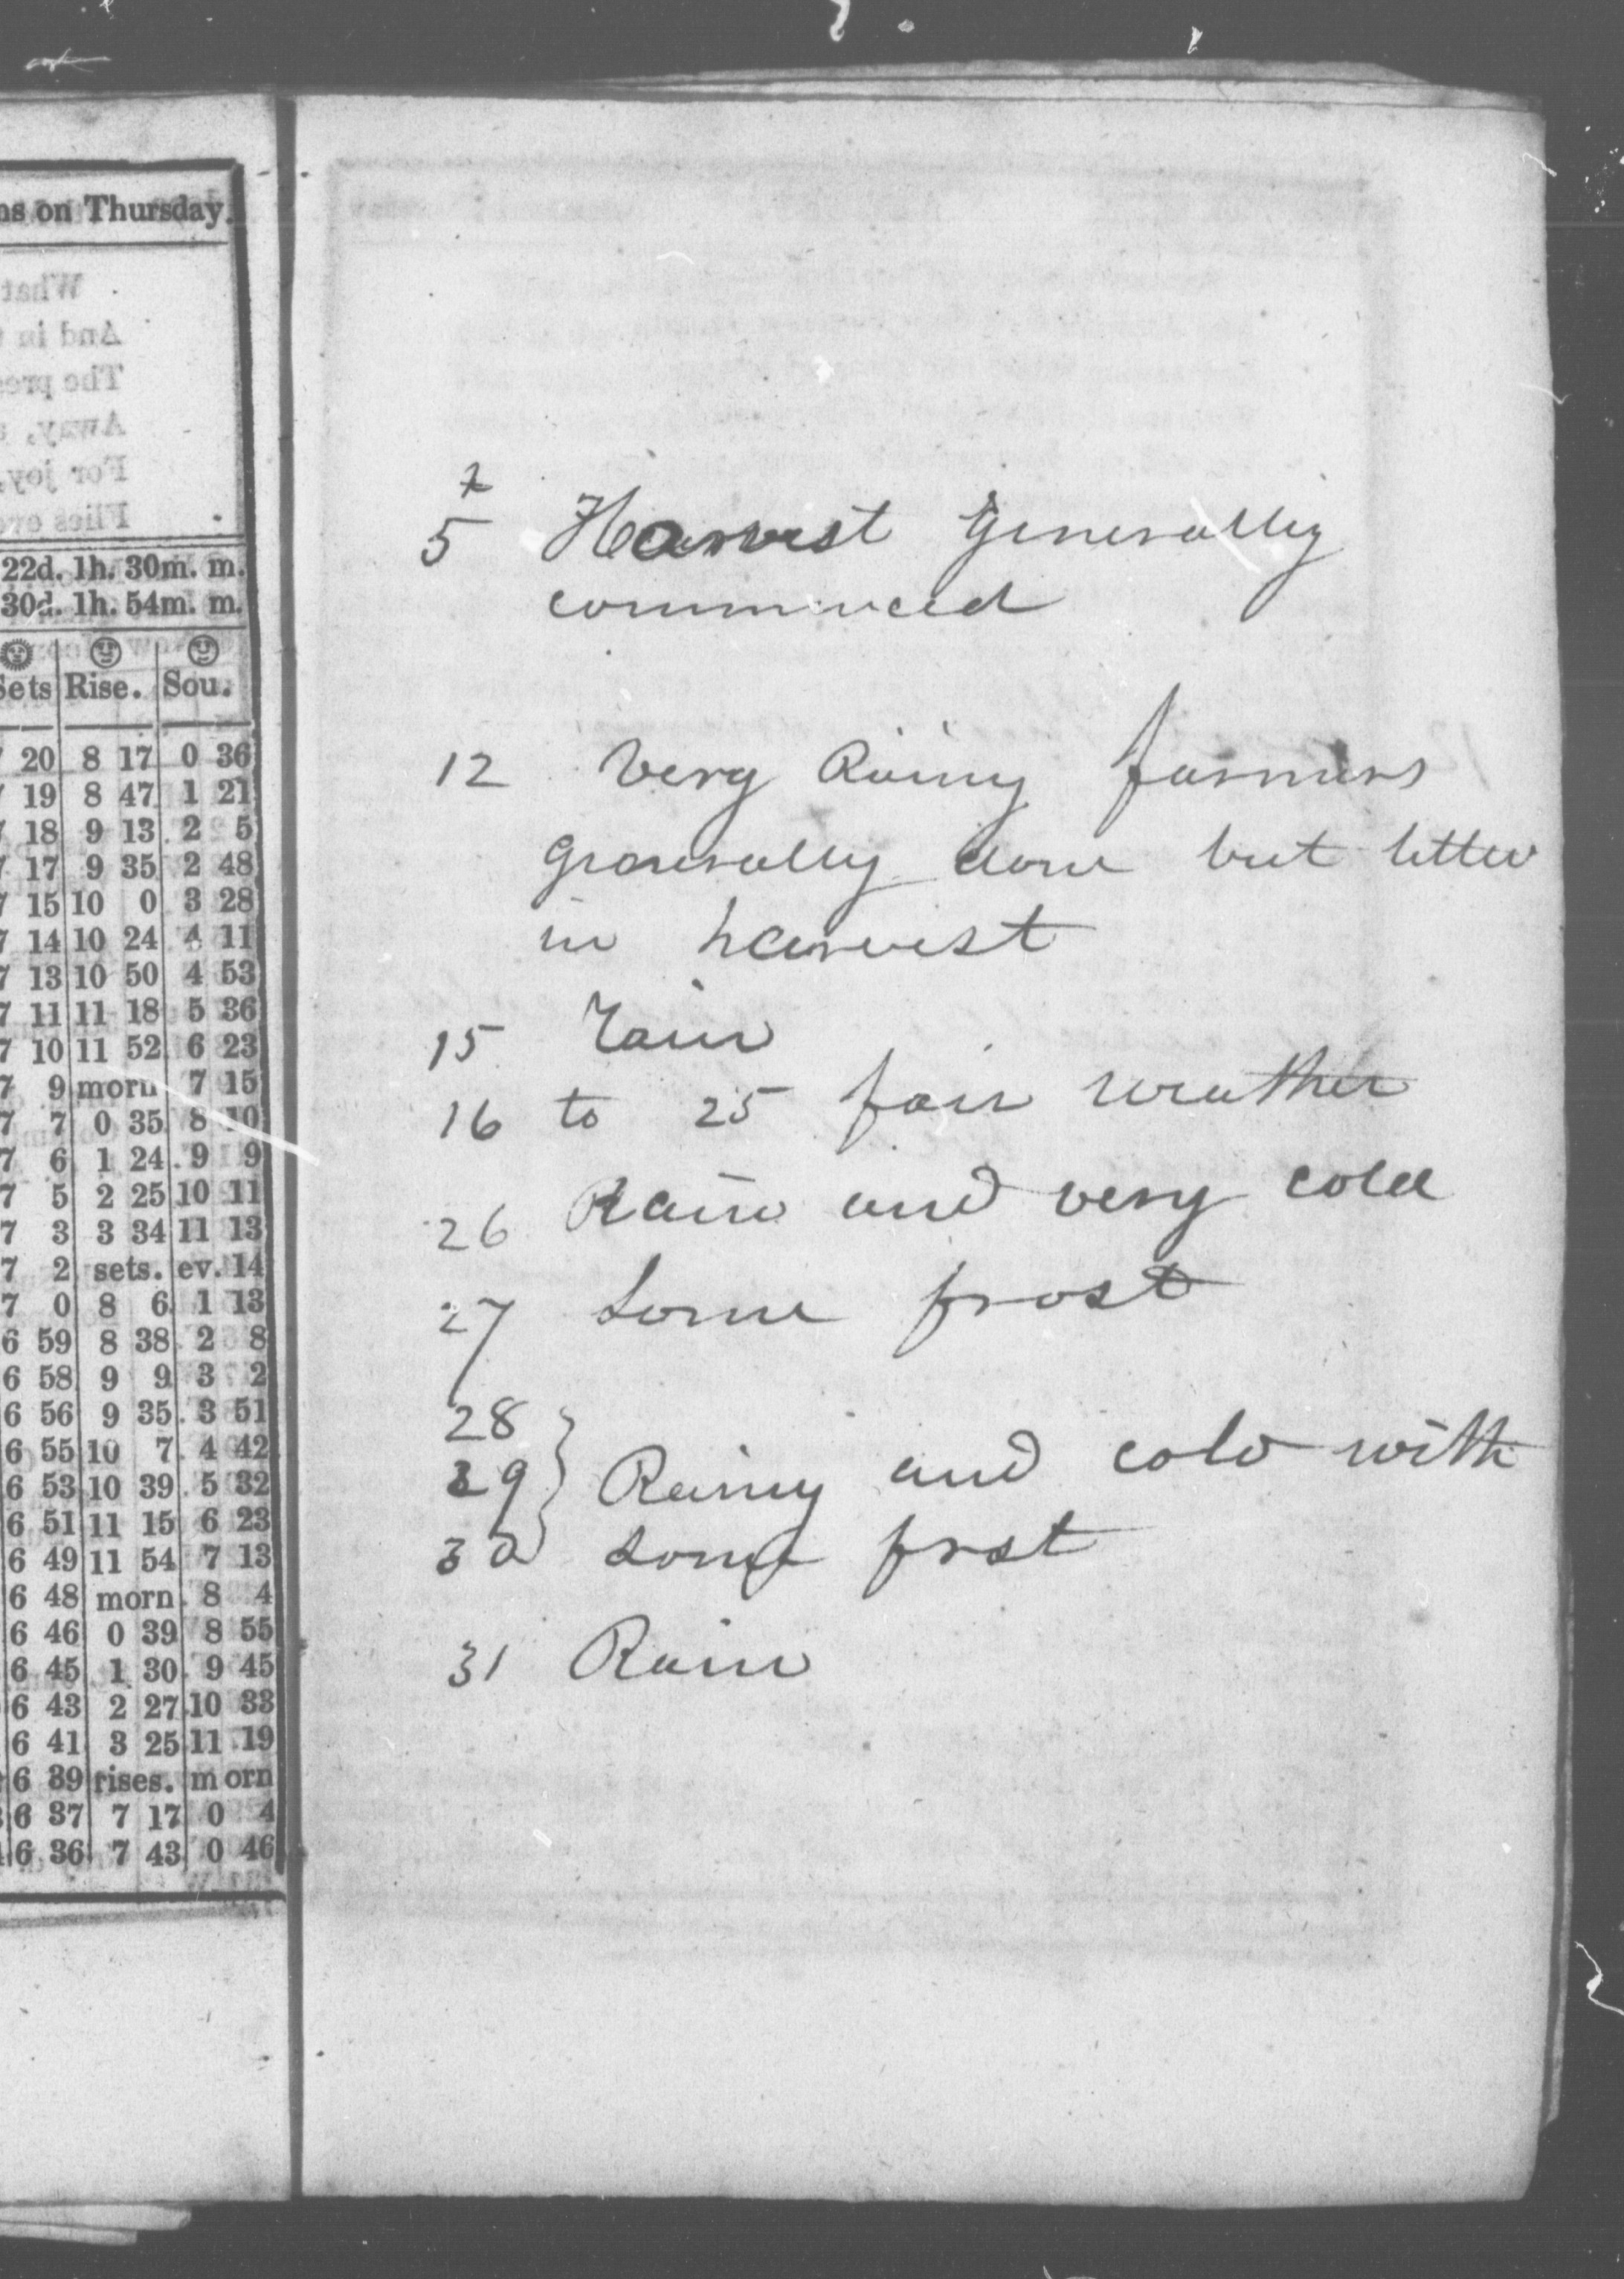 ns on Thursday.
What
And in
The pres
Away,
For joy,
Flies
22d. 1h. 30m. m.
30d. 1h. 54m. m.
Sets Rise. Sou.
7 20 8 17 0 36
7 19 8 47 1 21
7 18 9 13 2 5
7 17 9 35 2 48
7 15 10 0 3 28
7 14 10 24 4 11
7 13 10 50 4 53
7 11 11 18 5 36
7 10 11 52 6 23
7 9 morn 7 15
7 7 0 35 8 10
7 6 1 24 9 9
7 5 2 25 10 11
7 3 3 34 11 13
7 2 sets. ev. 14
7 0 8 6 1 13
6 59 8 38 2 8
6 58 9 9 3 2
6 56 9 35 3 51
6 55 10 7 4 42
6 53 10 39 5 32
6 51 11 15 6 23
6 49 11 54 7 13
6 48 morn 8 4
6 46 0 39 8 55
6 45 1 30 9 45
6 43 2 27 10 33
6 41 3 25 11 19
6 39 rises. morn
6 37 7 17 0 4
6 36 7 43 0 46
5 Harvest Generally
commenced
12 Very Rainy farmers
generally done but little
in harvest
15 Rain
16 to 25 fair weather
26 Rain and very cold
27 Some frost
28
29 } Rainy and cold with
30 some frost
31 Rain